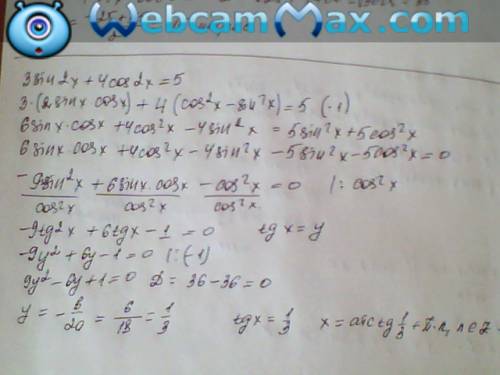 WebcamMax.com
3sin2x+4cos2x=5
3·(2sinx cosx)+4(cos²x-sin²x)=5 (·1)
6sinx·cosx+4cos²x-4sin²x=5sin²x+5cos²x
6sinx cosx+4cos²x-4sin²x-5sin²x-5cos²x=0
-9sin²x/cos²x + 6sinx·cosx/cos²x - cos²x/cos²x = 0 /: cos²x
-9tg²x+6tgx-1=0 tgx=y
-9y²+6y-1=0 /:(-1)
9y²-6y+1=0 D=36-36=0
y=-6/20=6/18=1/3 tgx=1/3 x=arctg1/3+π·n, n∈z